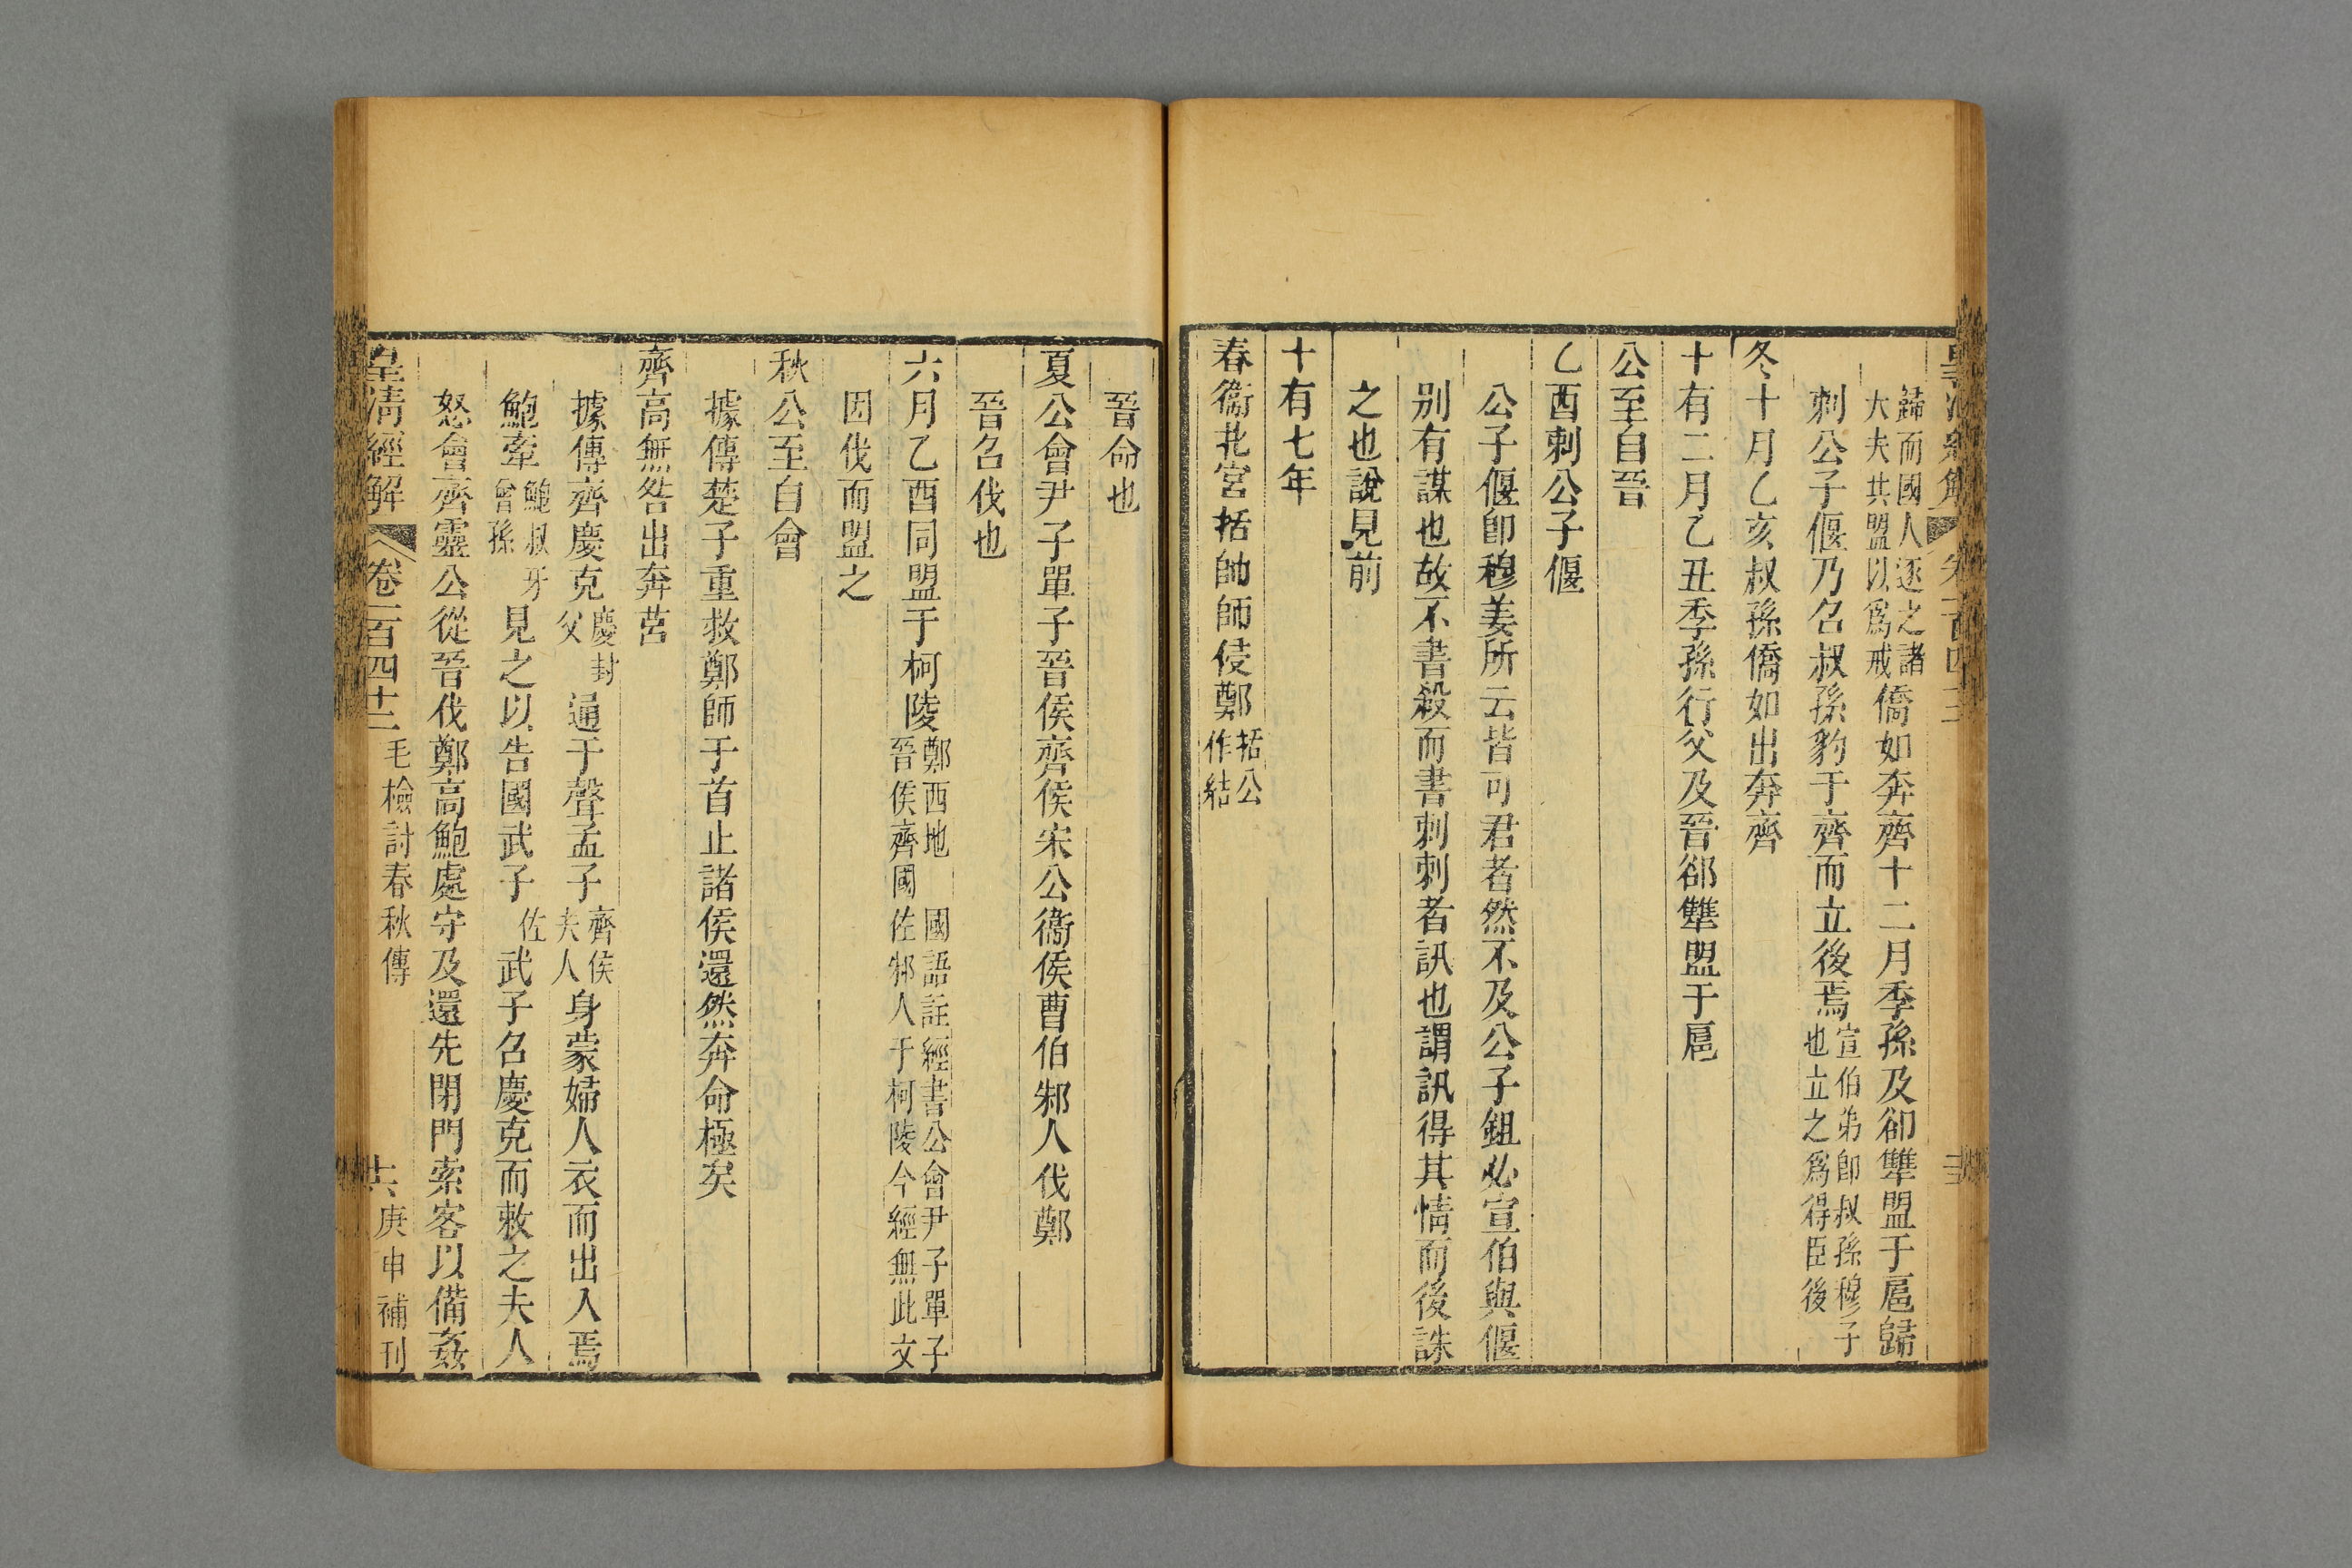 歸而國人逐之諸
大夫共盟以爲戒
僑如奔齊十二月季孫及郤犨盟于扈歸
刺公子偃乃召叔孫豹于齊而立後焉
宣伯弟卽叔孫穆子
也立之爲得臣後
冬十月乙亥叔孫僑如出奔齊
十有二月乙丑季孫行父及晉郤犨盟于扈
公至自晉
乙酉刺公子偃
公子偃卽穆姜所云皆可君者然不及公子鉏必宣伯與偃
別有謀也故不書殺而書刺刺者訊也謂訊得其情而後誅
之也說見前
十有七年
春衞北宮括帥師侵鄭
括公
作結
晉命也
夏公會尹子單子晉侯齊侯宋公衞侯曹伯邾人伐鄭
晉召伐也
六月乙酉同盟于柯陵
鄭西地 國語註經書公會尹子單子
晉侯齊國佐邾人于柯陵今經無此文
因伐而盟之
秋公至自會
據傳楚子重救鄭師于首止諸侯還然奔命極矣
齊高無咎出奔莒
據傳齊慶克
慶封
父
通于聲孟子
齊侯
夫人
身蒙婦人衣而出入焉
鮑牽
鮑叔牙
曾孫
見之以告國武子
佐
武子召慶克而敕之夫人
怒會齊靈公從晉伐鄭高鮑處守及還先閉門索客以備姦
皇清經解 卷一百四十三 毛檢討春秋傳 十六 庚申補刊